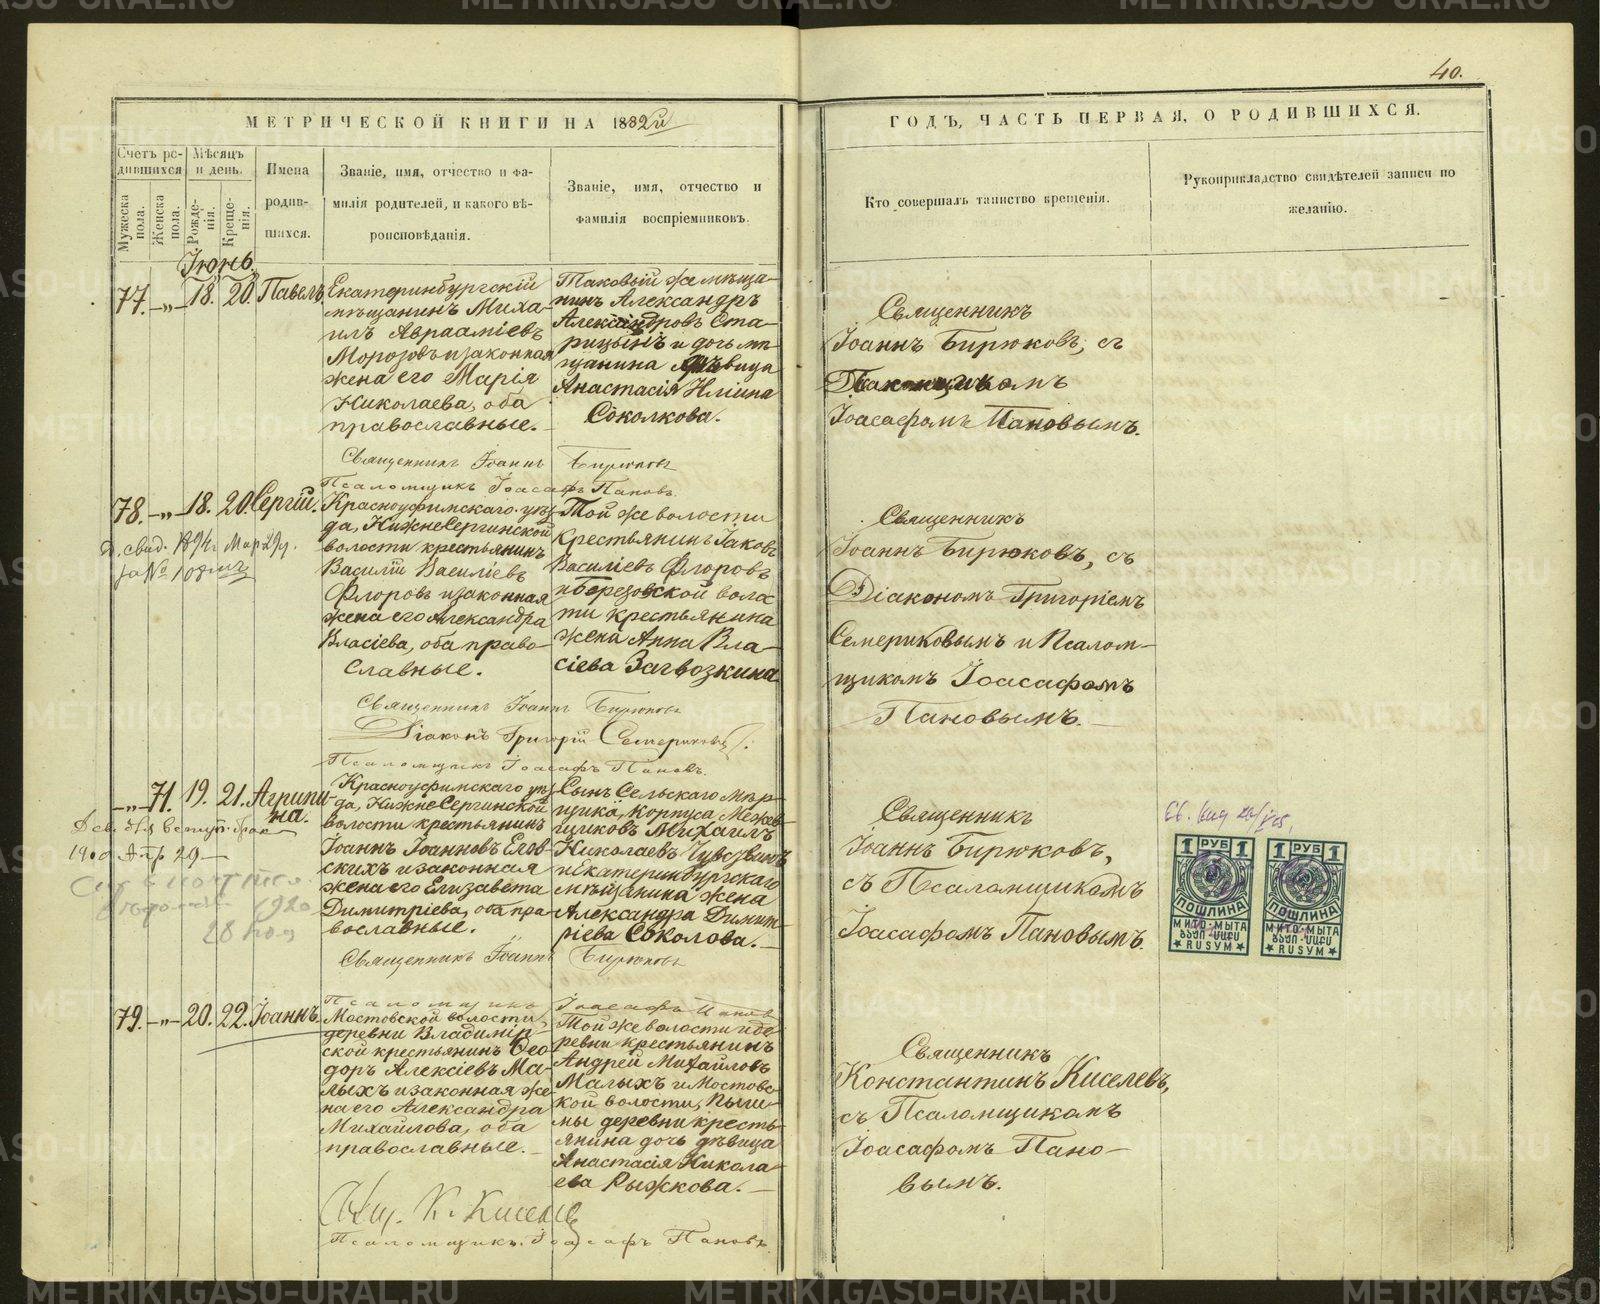 40.
МЕТРИЧЕСКОЙ КНИГИ НА 1882й
ГОДЪ, ЧАСТЬ ПЕРВАЯ, О РОДИВШИХСЯ.
Счетъ ро-
дившихся
Мѣсяцъ
и день.
Мужеска
пола.
Женска
пола.
Рожде-
нія.
Креще-
нія.
Имена
родив-
шихся.
Званіе, имя, отчество и фа-
милія родителей, и какого вѣ-
роисповѣданія.
Званіе, имя, отчество и
фамилія воспріемниковъ.
Кто совершалъ таинство крещенія.
Рукоприкладство свидѣтелей записи по
желанію.
Іюнь.
77. —„— 18. 20. Павелъ
Екатеринбургскій
мѣщанинъ Миха-
илъ Авраамiевъ
Морозовъ и законная
жена его Марія
Николаева, оба
православные.
Таковый же мѣща-
нинъ Александръ
Александровъ Ста-
рицынъ и дочь мѣ-
щанина дѣвица
Анастасія
Соколкова.
Священникъ
Іоаннъ Бирюковъ, съ
Іоасафомъ Пановымъ.
Священникъ Іоаннъ Бирюковъ
Псаломщикъ Іоасафъ Пановъ.
78. —„— 18. 20. Сергій.
Красноуфимскаго уѣз-
да, НижнеСергинской
волости крестьянинъ
Василій Василіевъ
Флоровъ и законная
жена его Александра
Власіева, оба право-
славные.
Той же волости
крестьянинъ Іаковъ
Василіевъ Флоровъ
и Березовской волос
ти крестьянина
жена Анна Вла-
сіева Загвозкина
Священникъ
Іоаннъ Бирюковъ, съ
Діакономъ Григоріемъ
Семериковымъ и Псалом-
щикомъ Іоасафомъ
Пановымъ.
Священникъ Іоаннъ Бирюковъ
Діаконъ Григорій Семериковъ
Псаломщикъ Іоасафъ Пановъ.
—„— 71. 19. 21. Агрипи-
на.
Красноуфимскаго уѣз-
да, НижнеСергинской
волости крестьянинъ
Іоаннъ Іоанновъ Елов-
скихъ и законная
жена его Елизавета
Димитріева, оба пра-
вославные.
Сынъ Сельскаго Мѣр-
щика, Корпуса Межев-
щиковъ Михаилъ
Николаевъ
и Екатеринбургскаго
мѣщанина жена
Александра Димит-
ріева Соколова.
Священникъ
Іоаннъ Бирюковъ,
съ Псаломщикомъ
Іоасафомъ Пановымъ.
1 РУБ 1
ПОШЛИНА
МИТО·МЫТА
RUSYM
1 РУБ 1
ПОШЛИНА
МИТО·МЫТА
RUSYM
Священникъ Іоаннъ Бирюковъ
Псаломщикъ Іоасафъ Пановъ
79. —„— 20. 22. Іоаннъ.
Мостовской волости,
деревни Владимір-
ской крестьянинъ Ѳео-
доръ Алексіевъ Ма-
лыхъ и законная же-
на его Александра
Михайлова, оба
православные.
Той же волости и де-
ревни крестьянинъ
Андрей Михайловъ
Малыхъ и Мостовс-
кой волости, Пыш-
мы деревни кресть-
янина дочь дѣвица
Анастасія Никола-
ева Рыжкова.
Священникъ
Константинъ Киселевъ,
съ Псаломщикомъ
Іоасафомъ Пано-
вымъ.
Свящ. К. Киселевъ
Псаломщикъ Іоасафъ Пановъ.
METRIKI.GASO-URAL.RU